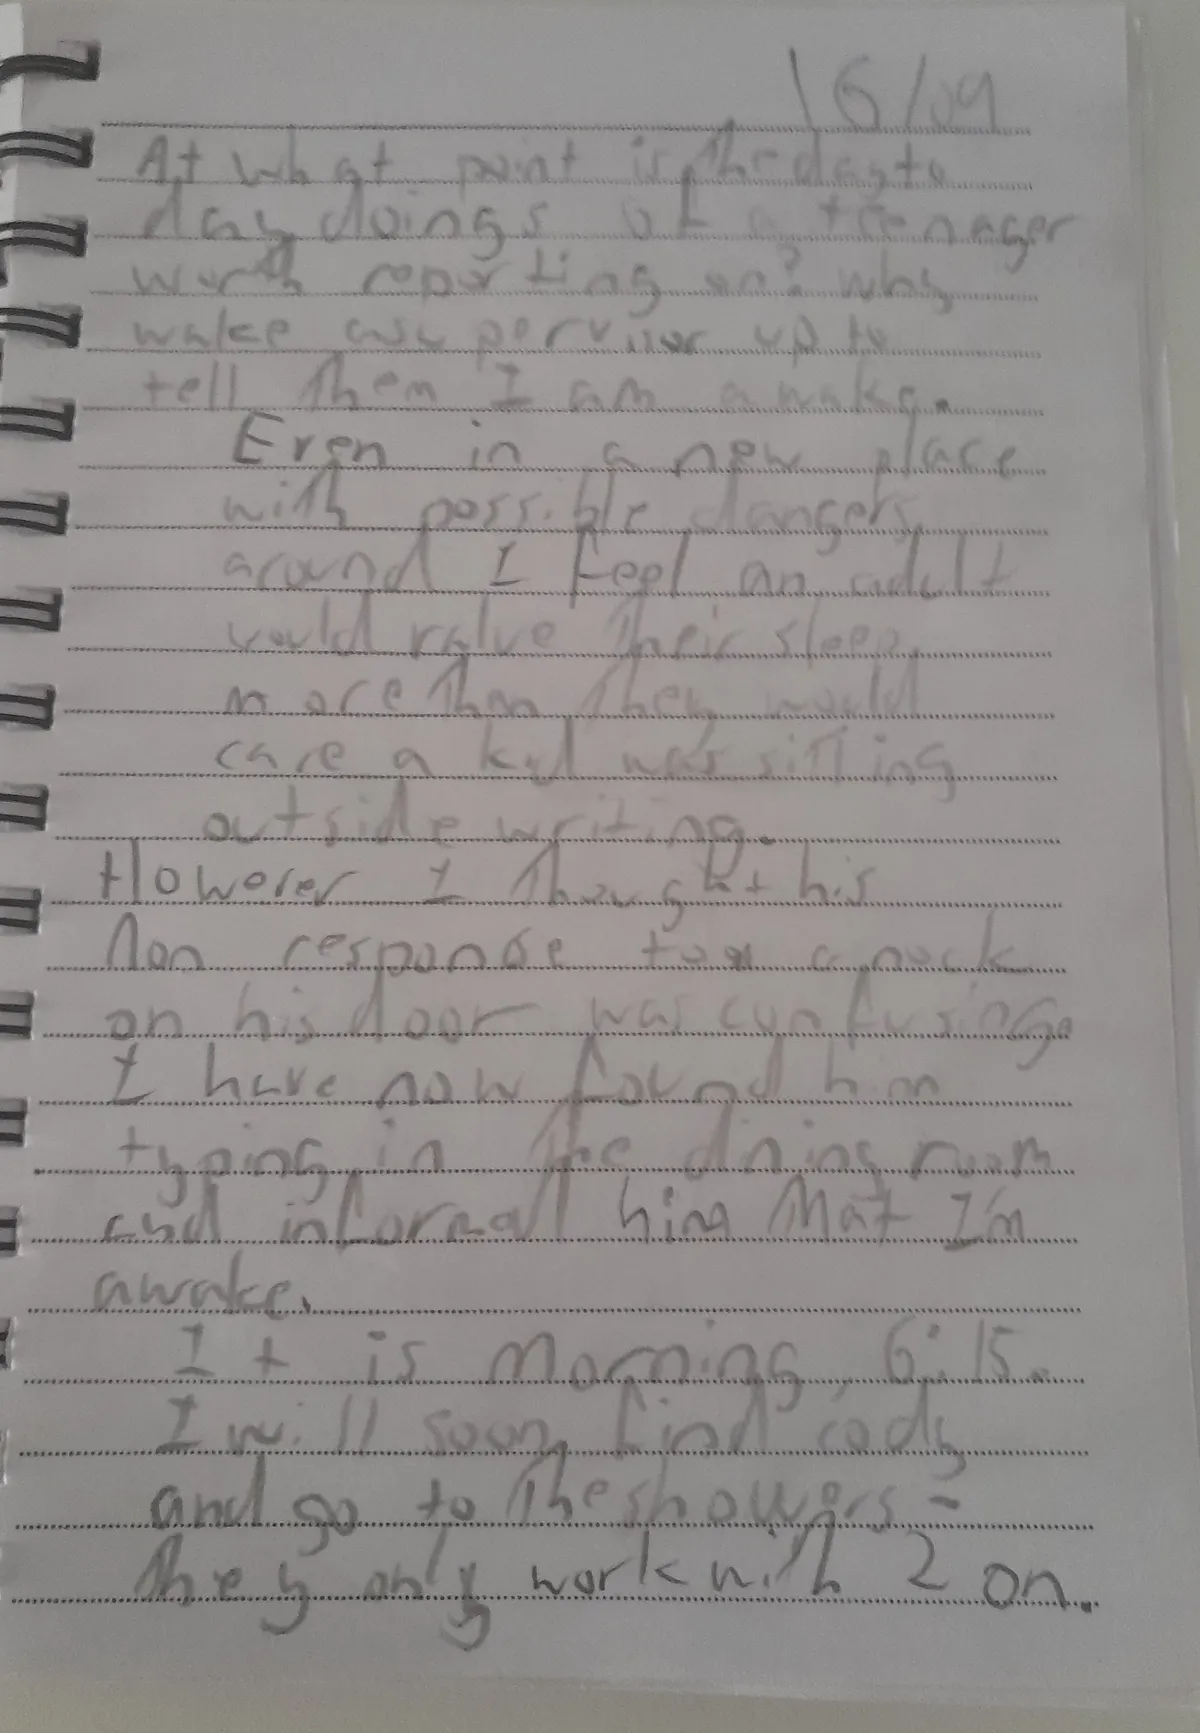 16/09
At what point is the day to
day doings of a teenager
worth reporting on? why
wake a supervisor up to
tell them I am awake.
Even in a new place
with possible dangers
around I feel an adult
would valve their sleep
more than they would
care a kid was sitting
outside writing.
However I thought his
non response to a nock
on his door was confusing.
I have now found him
typing in the dining room
and informed him that I'm
awake.
It is morning, 6:15.
I will soon find cody
and go to the showers -
they only work with 2 on.